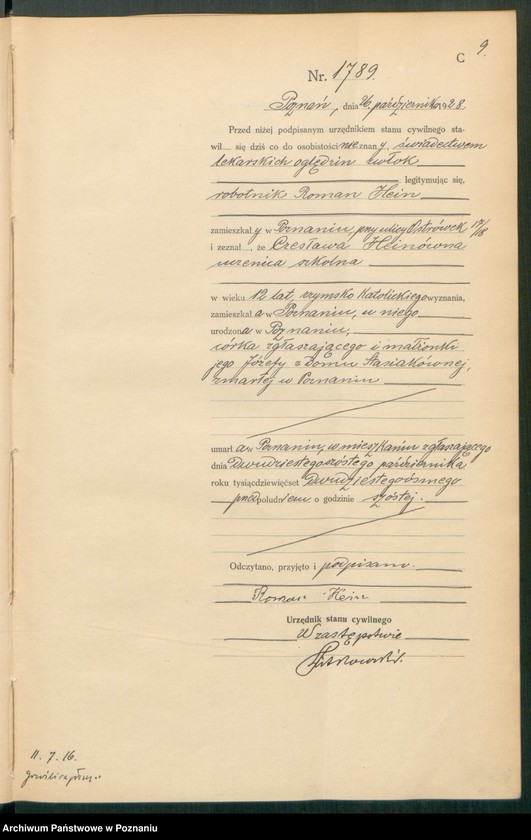 C 9.
Nr. 1789.
Poznań, dnia 26. października 1928.
Przed niżej podpisanym urzędnikiem stanu cywilnego sta-
wił się dziś co do osobistości nieznany, świadectwem
lekarskich oględzin zwłok
legitymując się,
robotnik Roman Hein
zamieszkały w Poznaniu, przy ulicy Ostrówek 17/18
i zeznał, że Czesława Heinówna
uczenica szkolna
w wieku 12 lat, rzymsko katolickiego wyznania,
zamieszkała w Poznaniu, u niego
urodzona w Poznaniu,
córka zgłaszającego i małżonki
jego Józefy z domu Stasiakównej,
zmarłej w Poznaniu
umarła w Poznaniu, w mieszkaniu zgłaszającego
dnia Dwudziestego szóstego października
roku tysiącdziewięćset Dwudziestegoósmego
przedpołudniem o godzinie szóstej.
Odczytano, przyjęto i podpisano.
Roman Hein
Urzędnik stanu cywilnego
W zastępstwie
11. 7. 16.
Archiwum Państwowe w Poznaniu